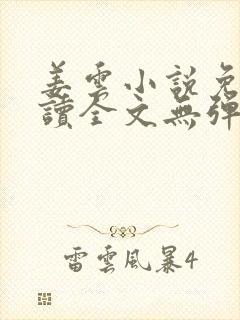 姜雲小說免
讀全文無彈
雷雲風暴4